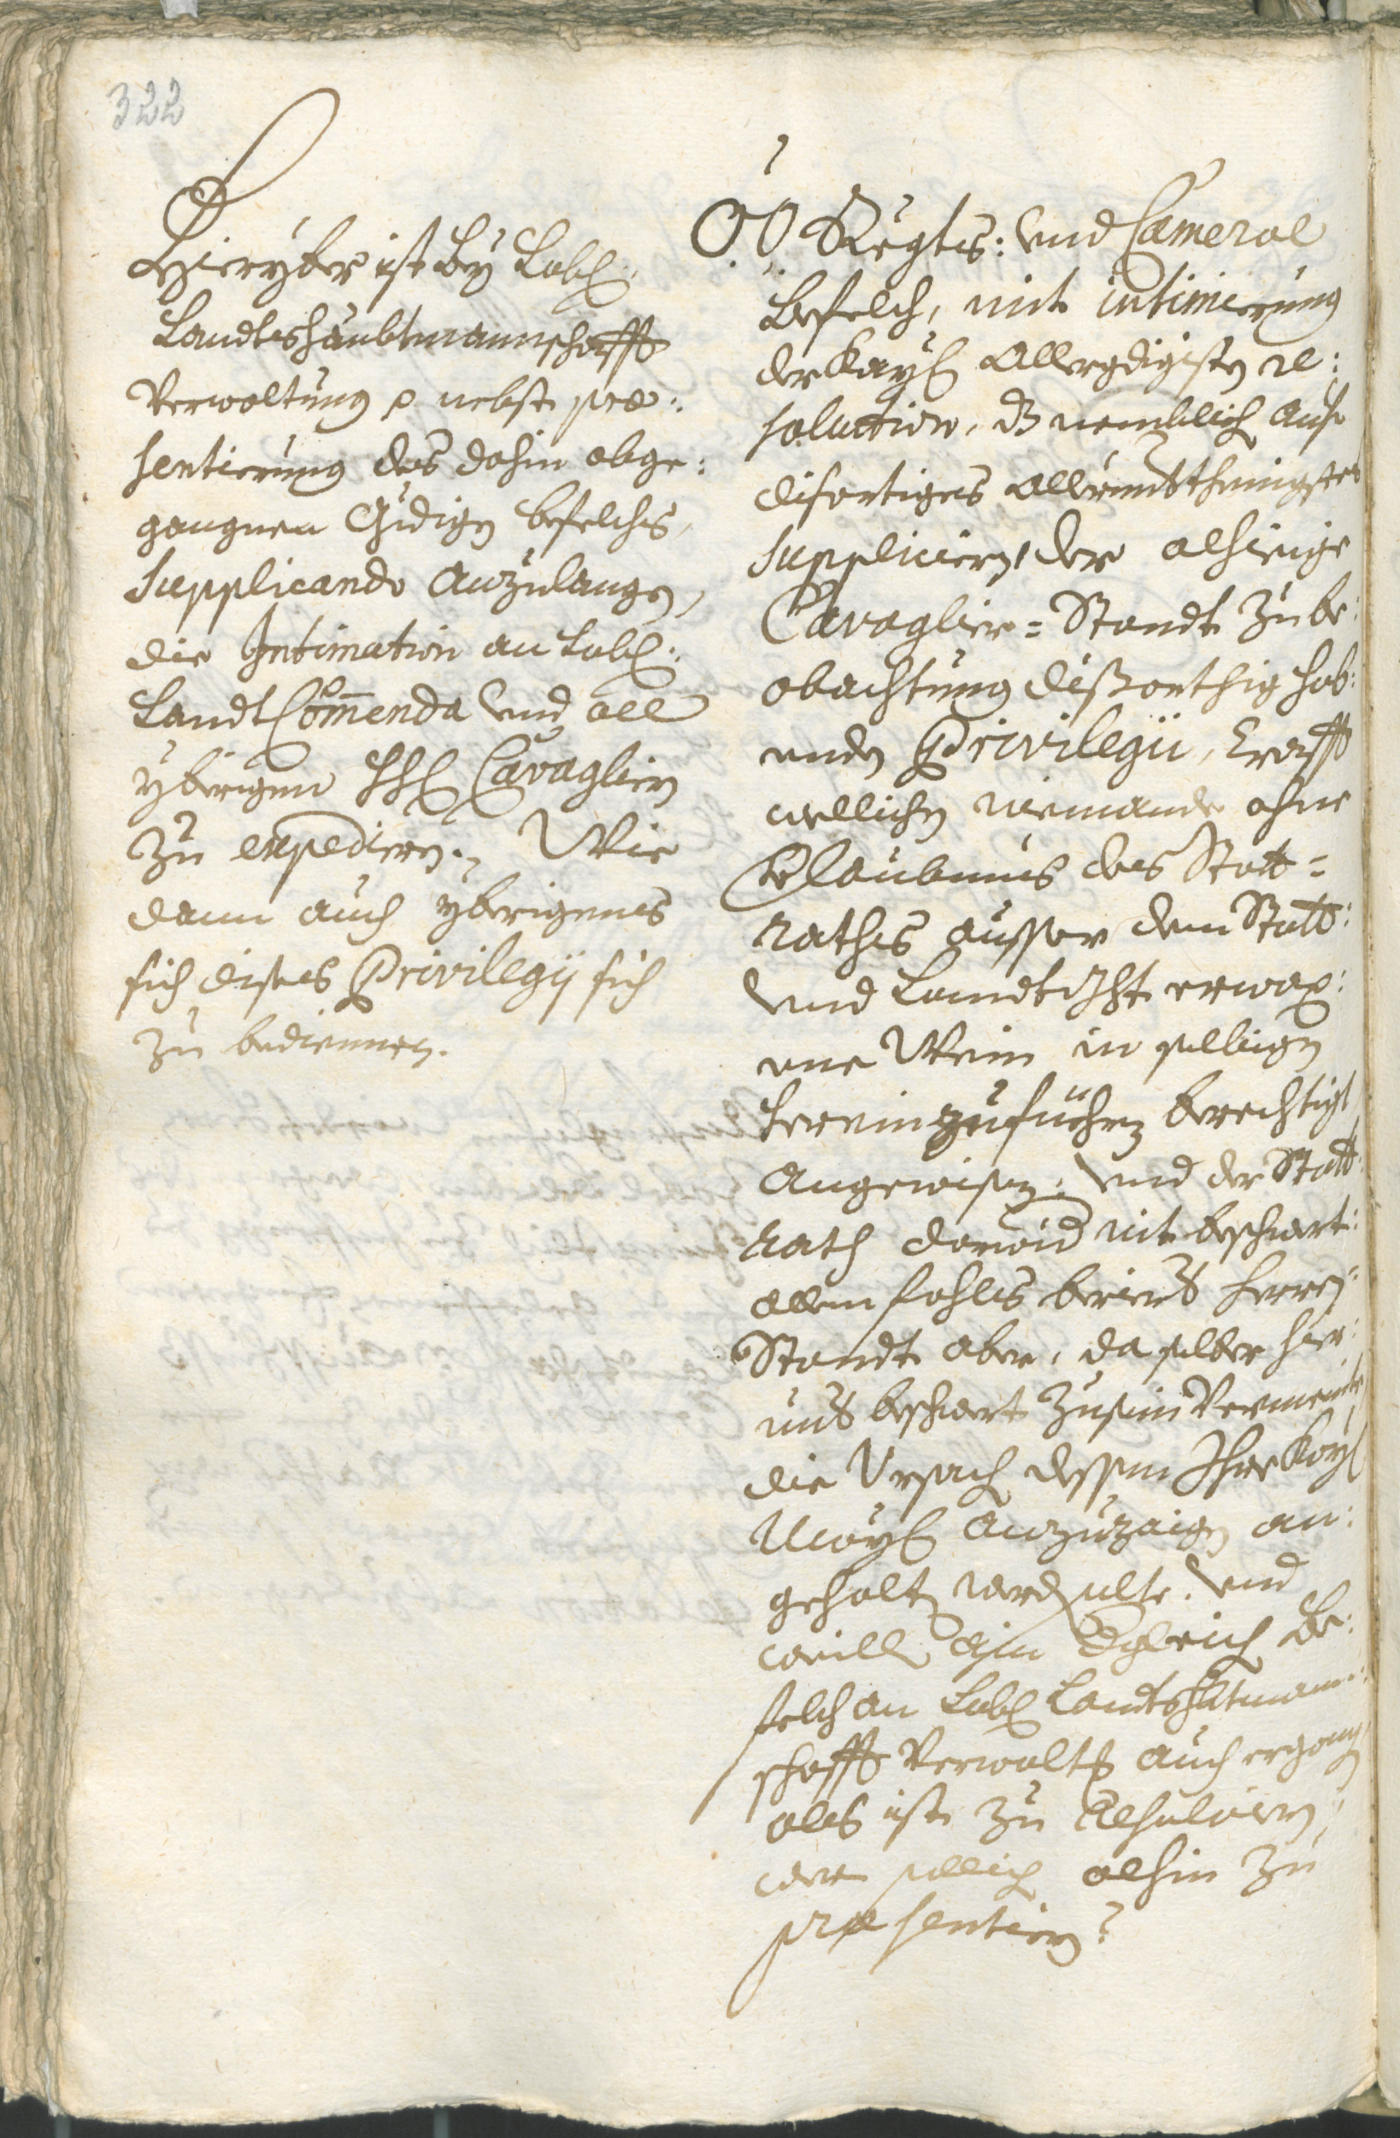 322
Hieryber ist bey Lobl:
Landtshaubtmannschafft
Verwaltung p nebst præ:
sentierung des dahin abge:
gangnen Gdigen befelchs,
supplicando anzulangen,
die Intimation an Lobl:
Landt Commenda und all
yberigen HH Cavaglien
zu expediern. Wie
dann auch yberigens
sich dises Privilegij sich
zu bediennen.
O: O: Regts: und Cameral
Befelch, mit intimierung
der Kayl Allergdigisten re:
solution, dz nemblich auf
disortiges allerundthenigstes
suppliciern, der alhieige
Cavaglier= Standt zu be:
obachtung dißorthig hab:
enden Privilegii, Crafft
wellichen niemandt ohne
Erlaubnus des Statt=
Rathes ausser dem Statt:
und Landtght erwax:
ene Wein in selbigen
hereinzufüehren berechtigt
angewisen: und der Statt
Rath darwid nit beschwert:
allenfahls beriert Herren:
Standt aber, da selber hier:
unt beschwert zusein vermeinte
die Ursach dessen Ihro Kayl
Mayl anzuzaigen an:
gehalten werden solte. und
weill ain dgleich Be:
felch an Lobl Landtshbtman:
schafft Verwaltg auch ergangen
als ist zu resolviern,
wer sollich alhin zu
præsentiern?